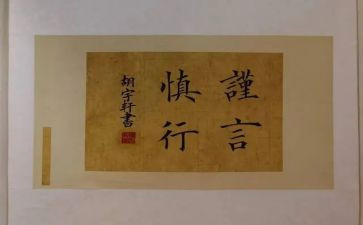 謹言
慎行
胡宇軒書